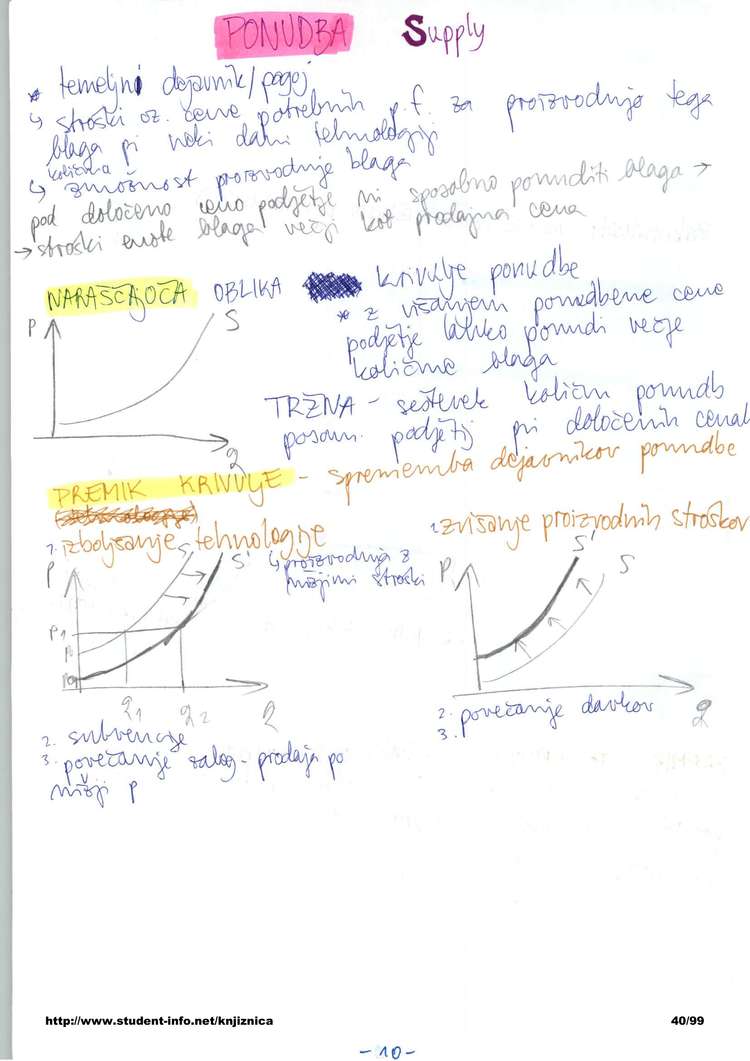 PONUDBA Supply
* temeljni dejavnik/pogoj
↳ stroški oz. cene potrebnih p.f. za proizvodnjo tega
blaga pi neki dani tehnologiji
količina
↳ zmožnost proizvodnje blaga
pod določeno ceno podjetje ni sposobno ponuditi blaga →
→ stroški enote blaga večji kot prodajna cena
NARAŠČAJOČA OBLIKA krivulje ponudbe
* z višanjem ponudbene cene
podjetje lahko ponudi večje
količine blaga
P S
q
TRŽNA - seštevek količin ponudb
posam. podjetij pri določenih cenah
PREMIK KRIVULJE - sprememba dejavnikov ponudbe
1. izboljšanje tehnologije
↳ proizvodnja z
nižjimi stroški
P S S'
P1
q1 q2 q
2. subvencije
3. povečanje zalog - prodaja po
nižji p
1. zvišanje proizvodnih stroškov
P S' S
q
2. povečanje davkov
3.
http://www.student-info.net/knjiznica 40/99
- 10 -